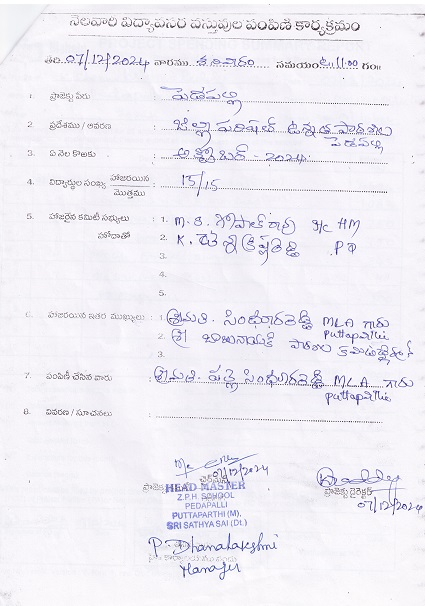 నెలవారి విద్యావసర వస్తువుల పంపిణి కార్యక్రమం
తేది. 07/12/2024 వారము శనివారం సమయం ఉ 11:00 గం॥
1 ప్రాజెక్టు పేరు : పెడపల్లి
2. ప్రదేశము / ఆవరణ : జిల్లా పరిషత్ ఉన్నత పాఠశాల
పెడపల్లి
3. ఏ నెల కొఱకు : అక్టోబర్ - 2024
4. విద్యార్థుల సంఖ్య హాజరయిన / మొత్తము : 15/15
5. హాజరైన కమిటీ సభ్యులు : 1. M.S. గోపాల్ I/c HM
హోదాతో 2. K. P.D
3.
4.
5.
6. హాజరయిన ఇతర ముఖ్యులు : 1. శ్రీమతి. సింధూరరెడ్డి MLA గారు
Puttaparthi
2. శ్రీ బాబు నాయక్ పాఠశాల
3.
7. పంపిణీ చేసిన వారు : శ్రీమతి. పల్లె సింధూరరెడ్డి MLA గారు
puttaparthi
8. వివరణ / సూచనలు :
07/12/2024
HEAD MASTER
Z.P.H. SCHOOL
PEDAPALLI
PUTTAPARTHI (M),
SRI SATHYA SAI (Dt.)
ప్రాజెక్టు డైరెక్టర్
07/12/2024
P. Dhanalakshmi
Manager